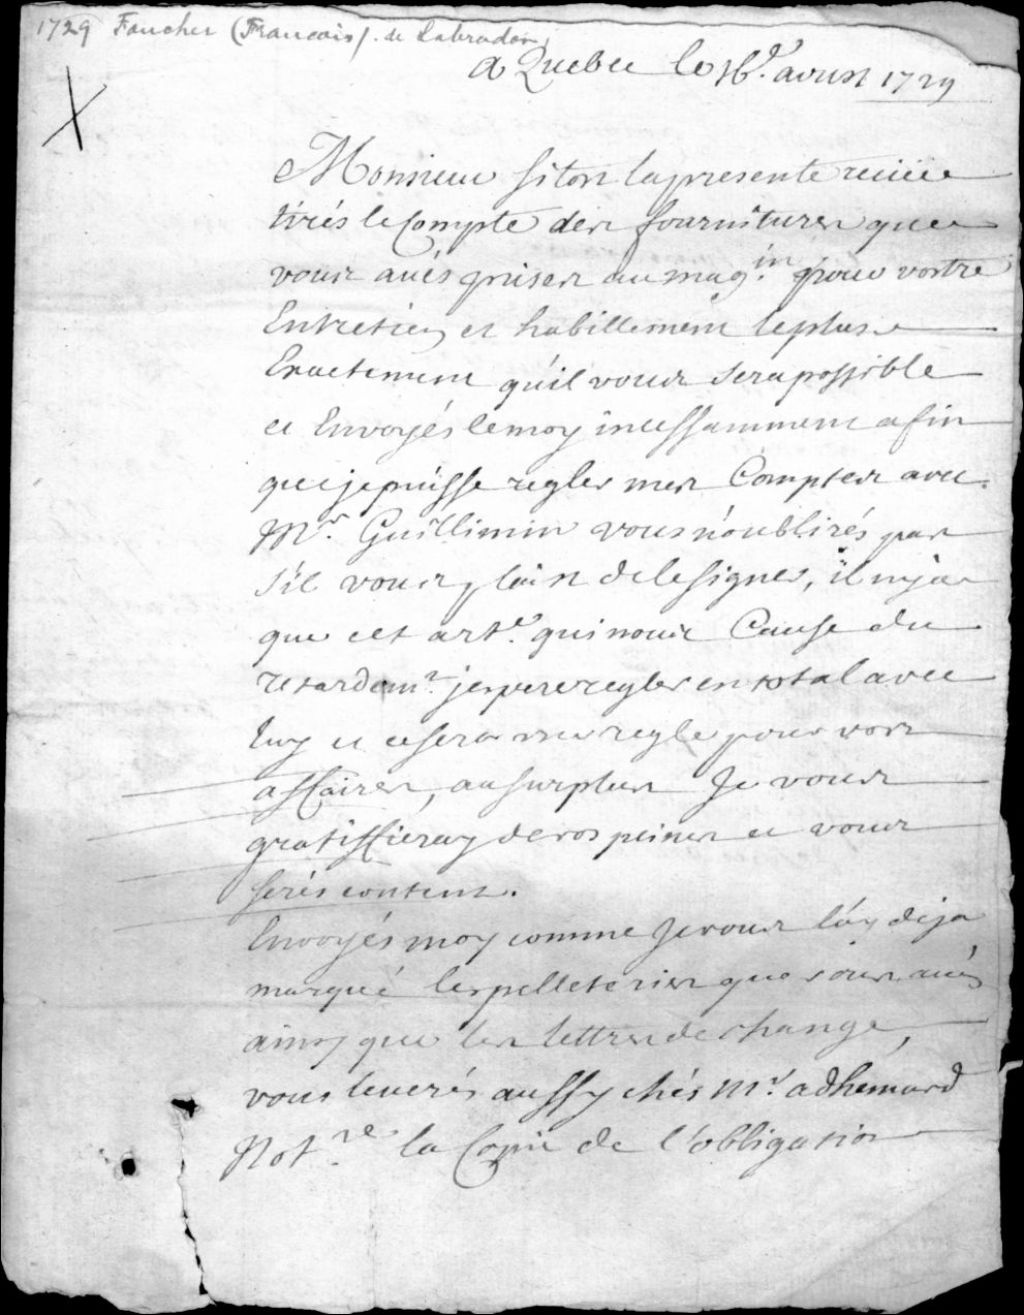 1729 Foucher (Francois) de Labrador
a Quebec le 16e. aoust 1729
Monsieur sitost la presente receüe
tirés le Compte des fournitures que
vous aués prises au mag.in pour vostre
Entretien et habillement le plus
Exactement qu'il vous sera possible
et Envoyés le moy incessamment afin
que je puisse regler mes Comptes avec
Mr. Guillimin vous n'oublirés pas
s'il vous plaist de le signer, il n'y a
que cet art.e qui nous Cause du
retardemt. j'espere regler en total avec
luy et ce sera regle pour vos
affaires, au surplus Je vous
gratiffieray de vos peines et vous
serés content.
Envoyés moy comme Je vous l'ay deja
marqué les pelleteries que vous aués
ainsy que les lettres de change,
vous leverés aussy chés Mr. adhémard
Not.re la Copie de l'obligation